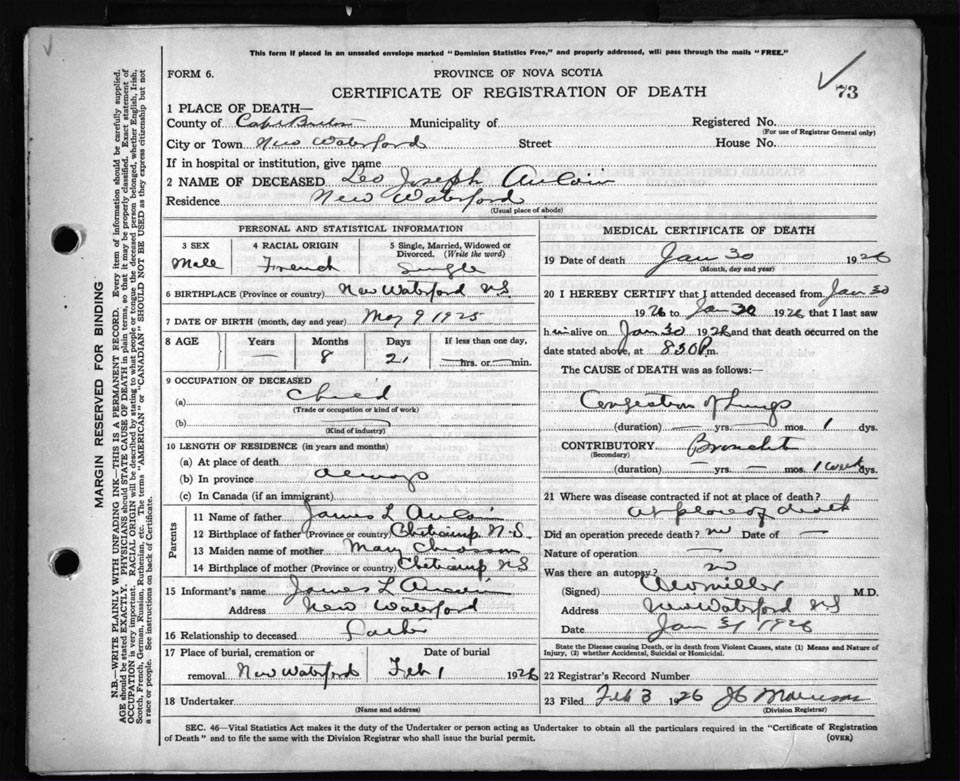 This form if placed in an unsealed envelope marked "Dominion Statistics Free," and properly addressed, will pass through the mails "FREE."
FORM 6.
PROVINCE OF NOVA SCOTIA
73
CERTIFICATE OF REGISTRATION OF DEATH
1 PLACE OF DEATH—
County of Cape Breton Municipality of Registered No.
(For use of Registrar General only)
City or Town New Waterford Street House No.
If in hospital or institution, give name
2 NAME OF DECEASED Leo Joseph Aucoin
Residence New Waterford
(Usual place of abode)
PERSONAL AND STATISTICAL INFORMATION
3 SEX 4 RACIAL ORIGIN 5 Single, Married, Widowed or Divorced. (Write the word)
Male French Single
6 BIRTHPLACE (Province or country) New Waterford NS
7 DATE OF BIRTH (month, day and year) May 9 1925
8 AGE Years Months Days If less than one day,
— 8 21 —hrs. or—min.
9 OCCUPATION OF DECEASED
(a) Child
(Trade or occupation or kind of work)
(b)
(Kind of industry)
10 LENGTH OF RESIDENCE (in years and months)
(a) At place of death
(b) In province always
(c) In Canada (if an immigrant)
Parents
11 Name of father James L Aucoin
12 Birthplace of father (Province or country) Cheticamp N.S.
13 Maiden name of mother Mary Chiasson
14 Birthplace of mother (Province or country) Cheticamp NS
15 Informant's name James L Aucoin
Address New Waterford
16 Relationship to deceased Father
17 Place of burial, cremation or removal New Waterford
Date of burial Feb 1 1926
18 Undertaker
(Name and address)
MEDICAL CERTIFICATE OF DEATH
19 Date of death Jan 30 1926
(Month, day and year)
20 I HEREBY CERTIFY that I attended deceased from Jan 30
1926 to Jan 30 1926 that I last saw
him alive on Jan 30 1926 and that death occurred on the
date stated above, at 8.30 P.m.
The CAUSE of DEATH was as follows:—
Congestion of Lungs
(duration) — yrs. — mos. 1 dys.
CONTRIBUTORY Bronchit
(Secondary)
(duration) — yrs. — mos. 1 week dys.
21 Where was disease contracted if not at place of death?
At place of death
Did an operation precede death? no Date of —
Nature of operation —
Was there an autopsy? no
(Signed) Miller M.D.
Address New Waterford NS
Date Jan 31 1926
State the Disease causing Death, or in death from Violent Causes, state (1) Means and Nature of
Injury, (2) whether Accidental, Suicidal or Homicidal.
22 Registrar's Record Number
23 Filed Feb 3 1926 Morrison
(Division Registrar)
SEC. 46—Vital Statistics Act makes it the duty of the Undertaker or person acting as Undertaker to obtain all the particulars required in the "Certificate of Registration
of Death" and to file the same with the Division Registrar who shall issue the burial permit.
(OVER)
MARGIN RESERVED FOR BINDING
N.B.—WRITE PLAINLY WITH UNFADING INK—THIS IS A PERMANENT RECORD. Every item of information should be carefully supplied.
AGE should be stated EXACTLY. PHYSICIANS should STATE CAUSE OF DEATH in plain terms, so that it may be properly classified. Exact statement of
OCCUPATION is very important. RACIAL ORIGIN will be described by stating to what people or tongue the deceased person belonged, whether English, Irish,
Scotch, French, German, Russian, Ruthenian, etc. The terms "AMERICAN" or "CANADIAN" SHOULD NOT BE USED as they express citizenship but not
a race or people. See instructions on back of Certificate.